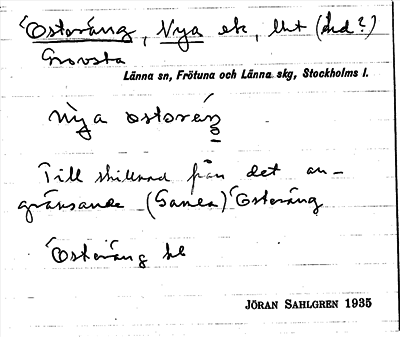 Österäng, Nya ek, lht (äd?)
Grovsta
Länna sn, Frötuna och Länna skg, Stockholms l.
nya östoräng
Till skillnad från det an-
gränsande (Gamla) Österäng
Österäng hl
JÖRAN SAHLGREN 1935